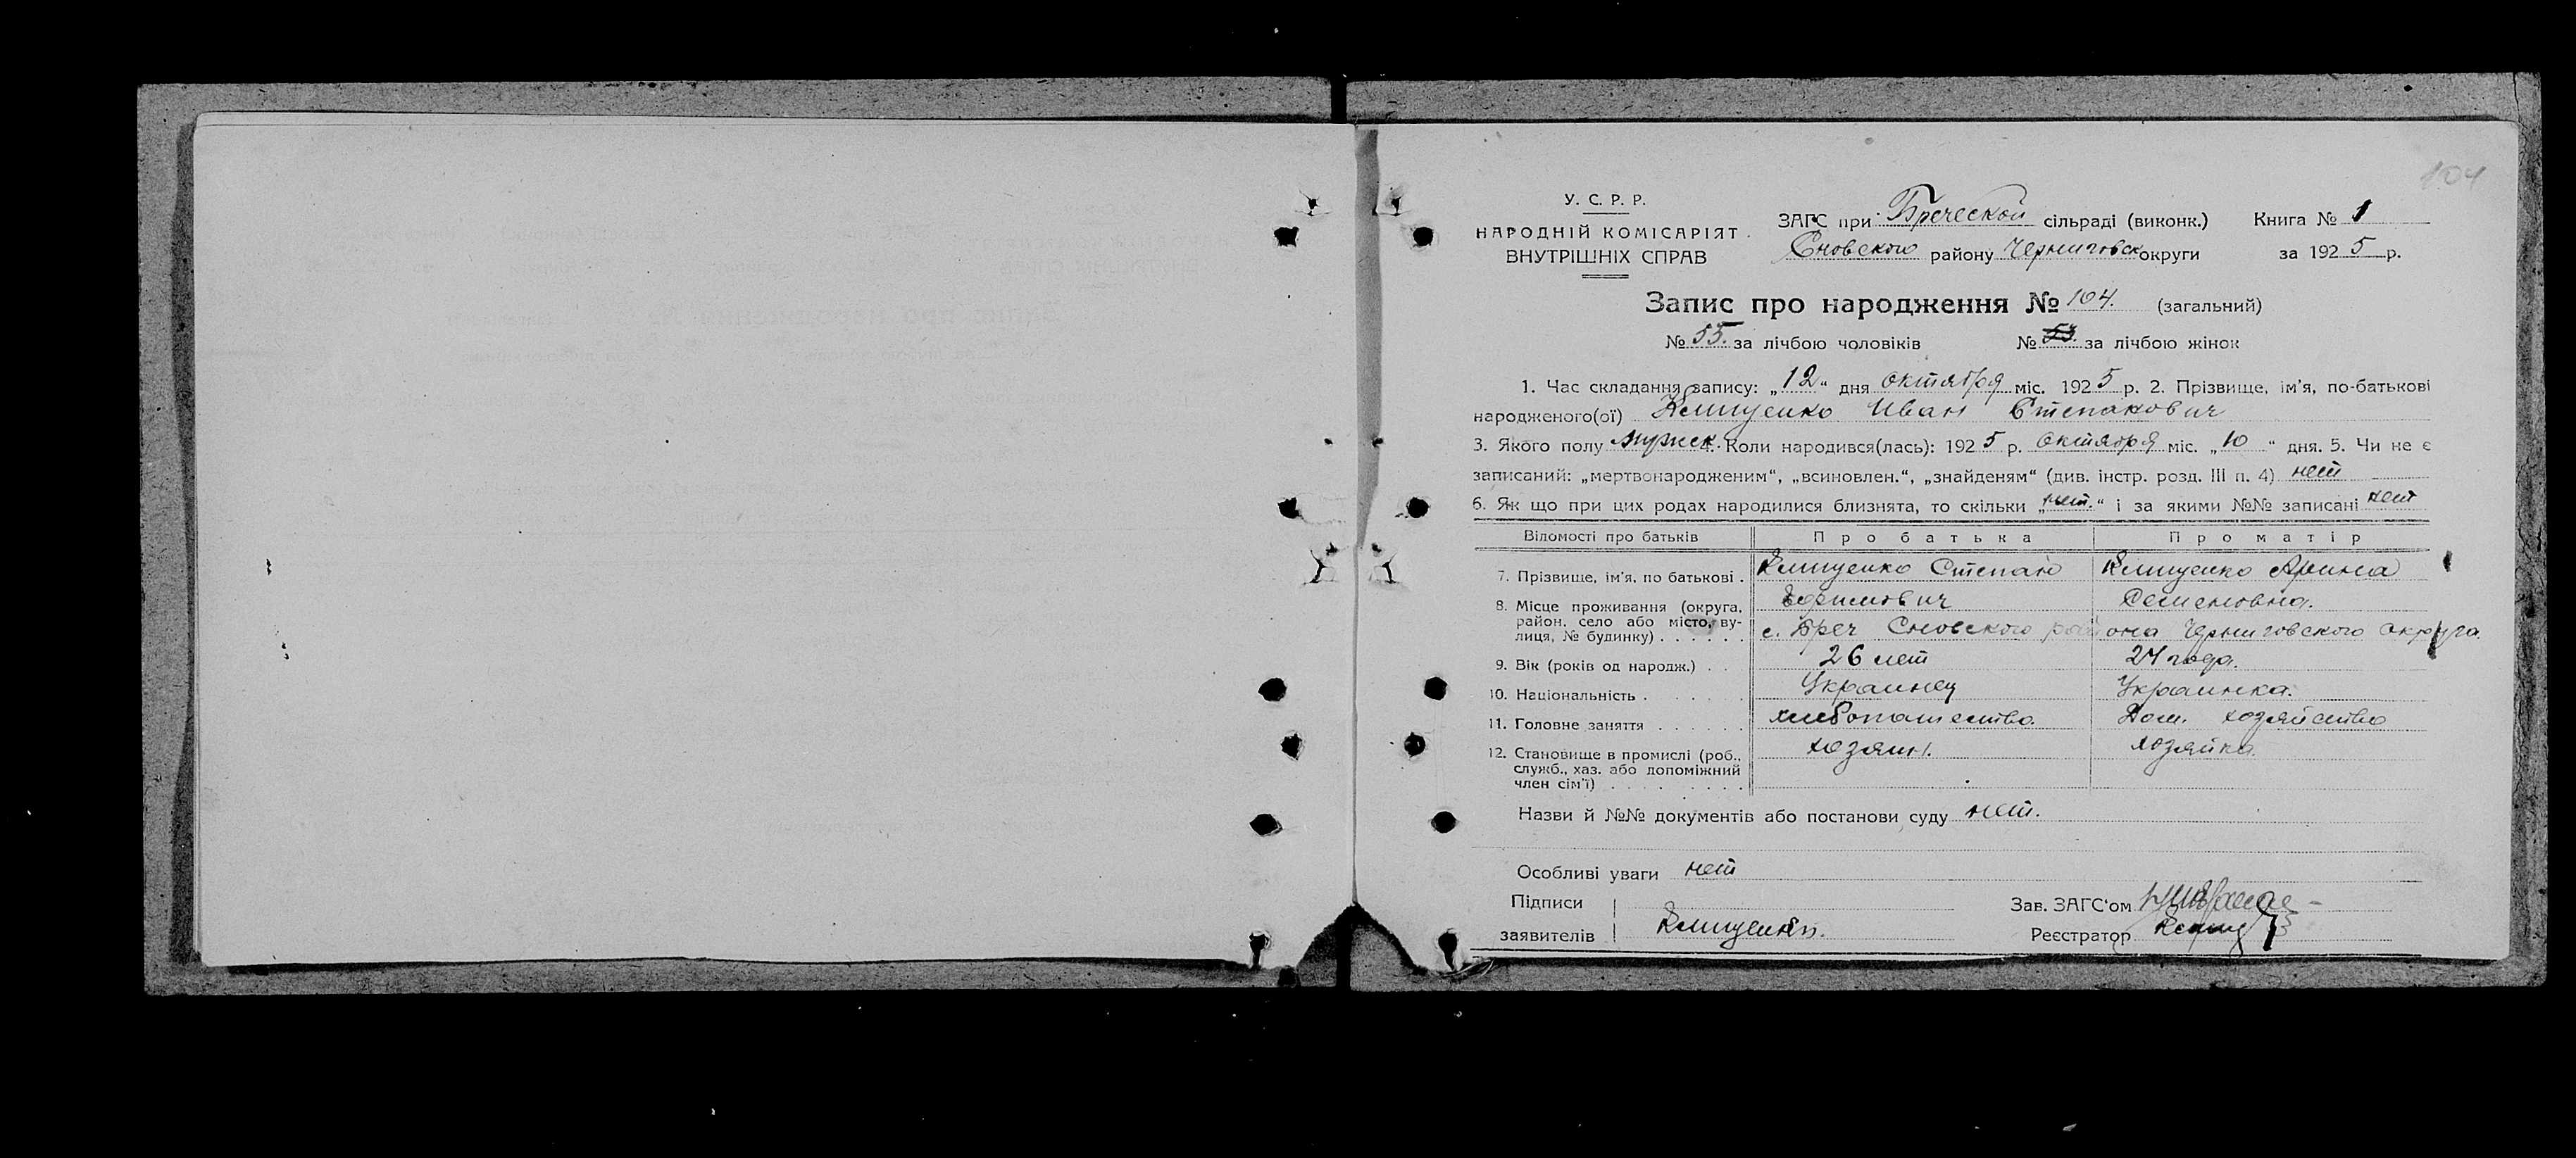 104
У. С. Р. Р.
НАРОДНІЙ КОМІСАРІЯТ
ВНУТРІШНІХ СПРАВ
ЗАГС при Бреческой сільраді (виконк.) Книга № 1
Сновского району Черниговск округи за 1925 р.
Запис про народження № 104. (загальний)
№ 55. за лічбою чоловіків № 53. за лічбою жінок
1. Час складання запису: „12“ дня октября міс. 1925 р. 2. Прізвище, ім'я, по-батькові
народженого(ої) Клищенко Иван Степанович
3. Якого полу мужск. 4. Коли народився(лась): 1925 р. октября міс. „10“ дня. 5. Чи не є
записаний: „мертвонародженим“, „всиновлен.“, „знайденям“ (див. інстр. розд. III п. 4) нет
6. Як що при цих родах народилися близнята, то скільки „нет.“ і за якими №№ записані нет
Відомості про батьків Про батька Про матір
7. Прізвище, ім'я, по батькові . Клищенко Степан Клищенко Арина
Ефимович Семеновна.
8. Місце проживання (округа, район, село або місто, вулиця, № будинку) . . . . . . с. Бреч Сновского района Черниговского округа
9. Вік (років од народж.) . . 26 лет 24 года.
10. Національність . . . . . Украинец Украинка.
11. Головне заняття . . . . . . хлебопашество. Дом. хозяйство
12. Становище в промислі (роб., служб., хаз. або допоміжний член сім'ї) . . . . . . . . . хозяин. хозяйка.
Назви й №№ документів або постанови суду нет.
Особливі уваги нет
Підписи Зав. ЗАГС'ом
заявителів Клищенко. Реєстратор